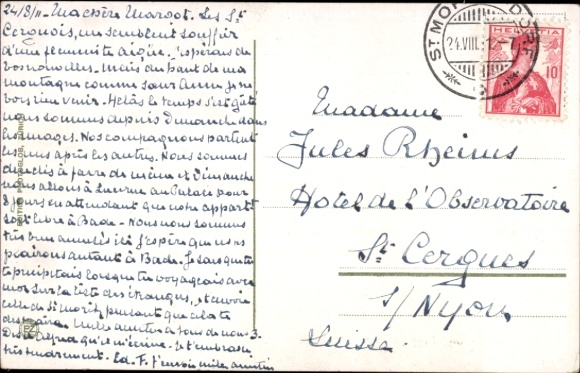 24/8/11 - Ma chère Margot. Les St.
Cerguois, me semblent souffrir
d'une flemmite aigüe. J'espérais de
vos nouvelles. Mais du haut de ma
montagne comme sœur Anne je ne
vois rien venir. Hélas le temps s'est gâté
nous sommes depuis Dimanche dans
les nuages. Nos compagnons partent
les uns après les autres. Nous sommes
décidés à faire de même et Dimanche
nous allons à Lucerne au Palace pour
8 jours en attendant que notre appart
soit libre à Bade - Nous nous sommes
très bien amusés ici j'espère que nous
plairons autant à Bade. Je sais que
précipitais lorsque tu voyageais avec
moi sur la liste des étrangers, et envoie
celle de St. Moritz pensant que cela te
Mille amitiés de tous de nous 3.
Dis à qu'il m'écrive. Je t'embrasse
très tendrement. Ed. F. J'envoie mille amitiés
EDITION PHOTOGLOB, ZÜRICH
PZ
ST MORITZ DORF
24.VIII.11-7
HELVETIA
10
Madame
Jules Rheims
Hotel de l'Observatoire
St. Cergues
s/ Nyon
Suisse